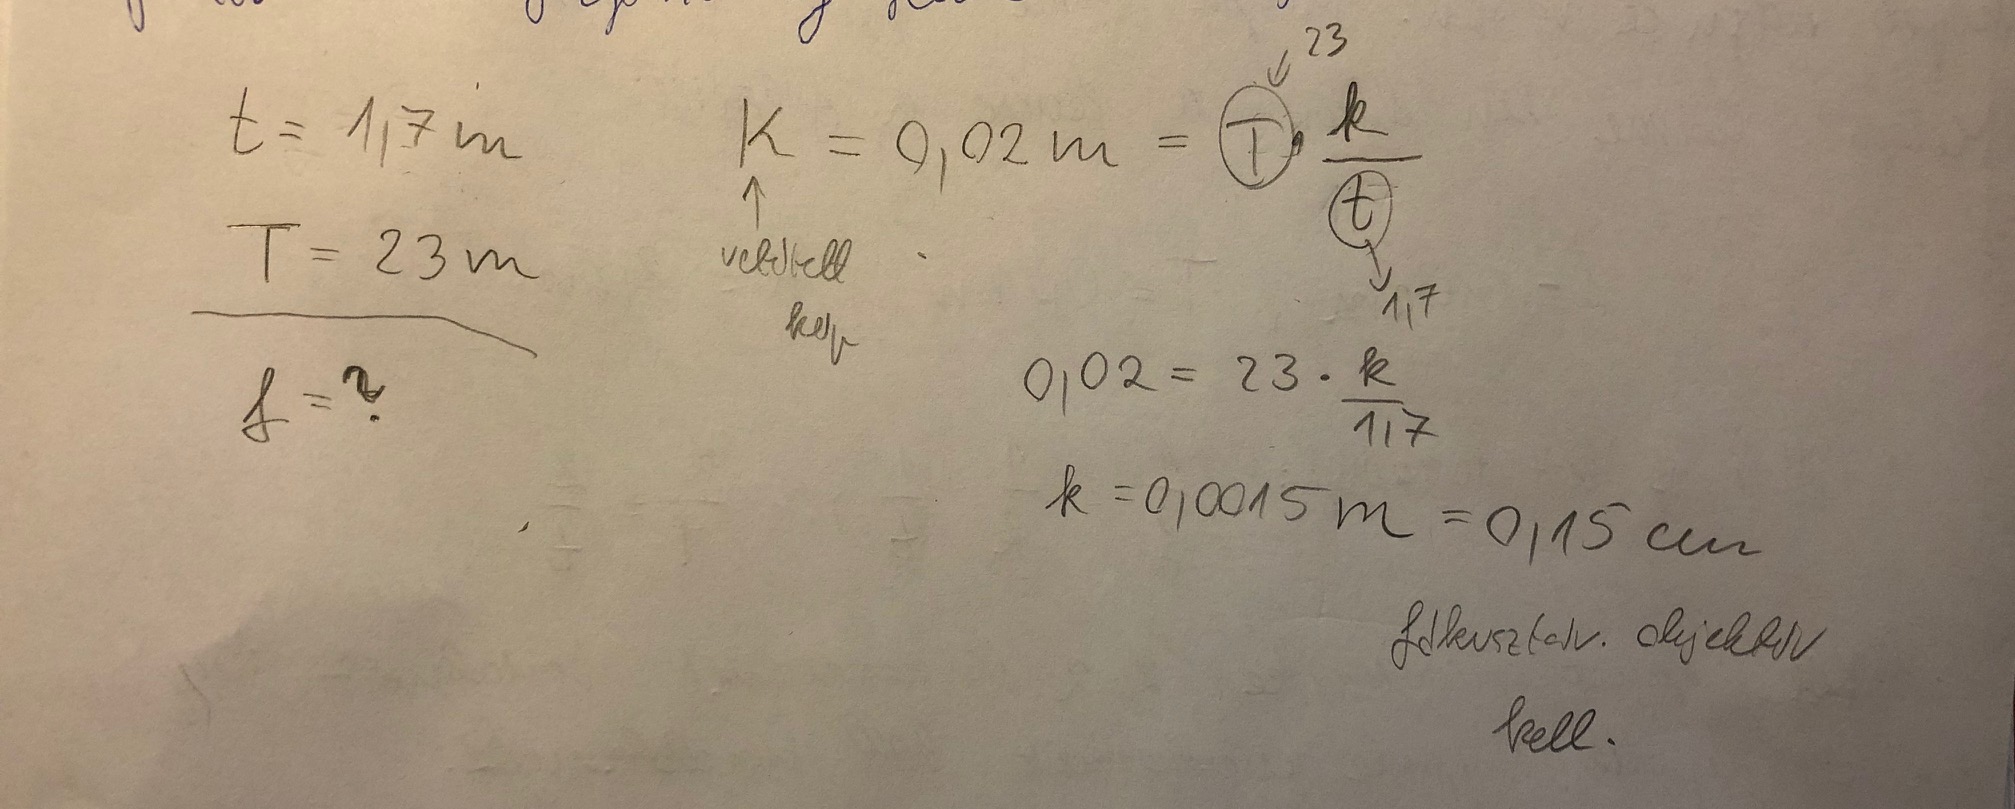 t = 1,7 m
T = 23 m
f = ?
K = 0,02 m = T · k/t
23
1,7
vetített
kép
0,02 = 23 · k/1,7
k = 0,0015 m = 0,15 cm
fókusztáv. objektív
kell.